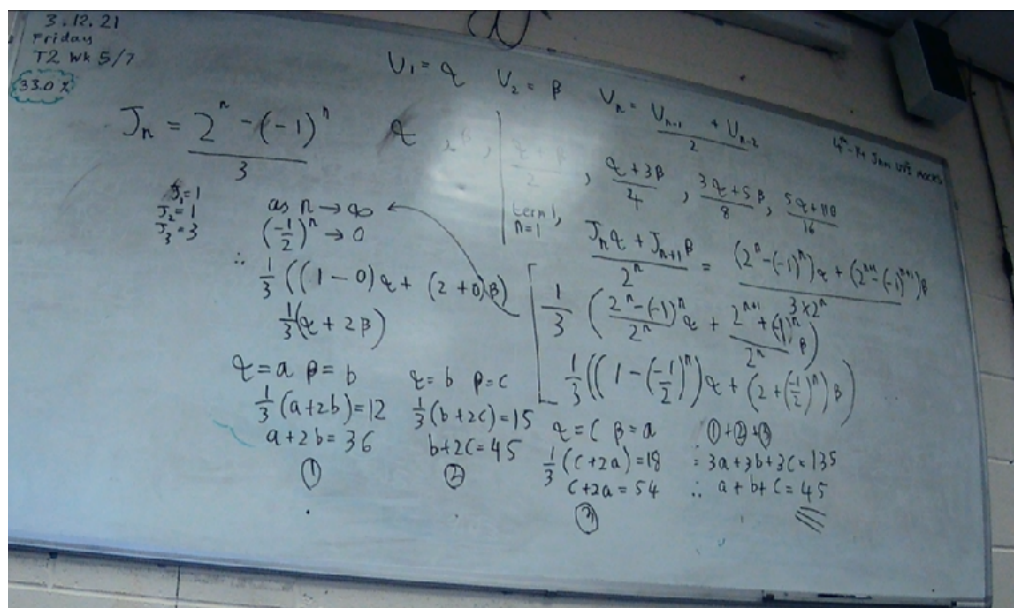 3.12.21
Friday
T2 Wk 5/7
33.0%
U₁ = α   U₂ = β   Uₙ = (Uₙ₋₁ + Uₙ₋₂)/2
Jₙ = (2ⁿ - (-1)ⁿ)/3
J₁=1
J₂=1
J₃=3
α, β, (α + β)/2, (α + 3β)/4, (3α + 5β)/8, (5α + 11β)/16
term 1,
n=1
(Jₙα + Jₙ₊₁β)/2ⁿ = ((2ⁿ-(-1)ⁿ)α + (2ⁿ⁺¹-(-1)ⁿ⁺¹)β)/(3×2ⁿ)
1/3 ((2ⁿ-(-1)ⁿ)/2ⁿ α + (2ⁿ⁺¹+(-1)ⁿ)/2ⁿ β)
1/3 ((1-(-1/2)ⁿ)α + (2+(-1/2)ⁿ)β)
as n → ∞
(-1/2)ⁿ → 0
∴
1/3 ((1-0)α + (2+0)β)
1/3 (α + 2β)
α = a   β = b
1/3 (a+2b) = 12
a+2b = 36
①
α = b   β = c
1/3 (b+2c) = 15
b+2c = 45
②
α = c   β = a
1/3 (c+2a) = 18
c+2a = 54
③
①+②+③
: 3a+3b+3c=135
∴ a+b+c=45